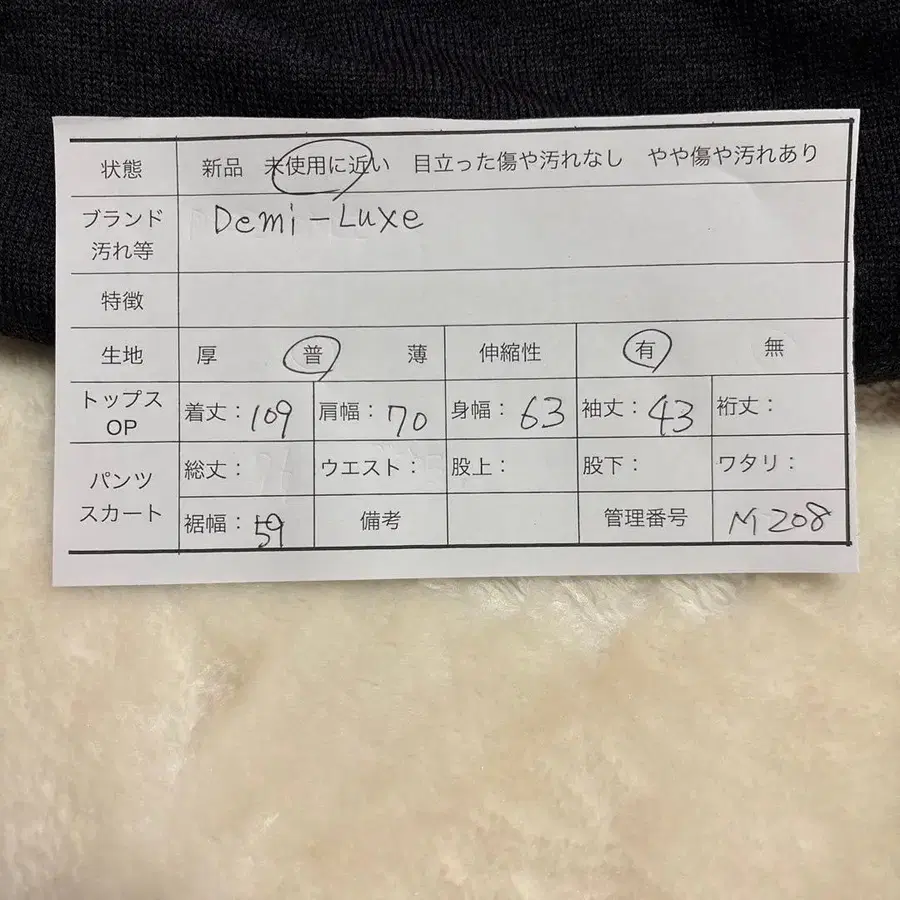 状態 新品 未使用に近い 目立った傷や汚れなし やや傷や汚れあり
ブランド Demi-Luxe
汚れ等
特徴
生地 厚 普 薄 伸縮性 有 無
トップス OP 着丈：109 肩幅：70 身幅：63 袖丈：43 裄丈：
パンツ 総丈： ウエスト： 股上： 股下： ワタリ：
スカート 裾幅：59 備考 管理番号 M208